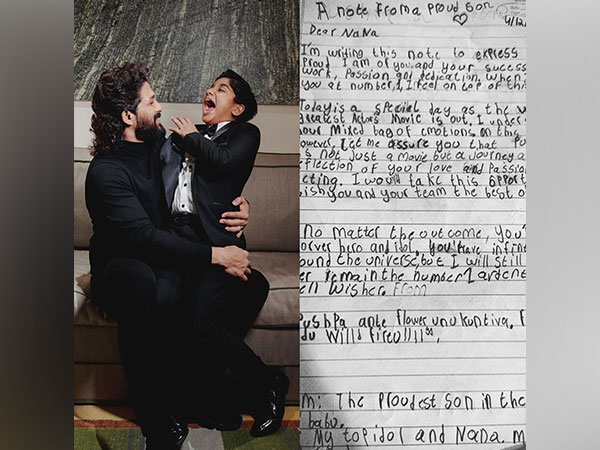 A note from a proud son
4/12
Dear Nana
I'm writing this note to express
Proud I am of you and your success
work, Passion and dedication. When
you at number 1, I feel on top of this
Today is a special day as the
greatest Actors Movie is out. I under
your Mixed bag of emotions on this
However, let me assure you that Pu
is not just a movie but a journey a
reflection of your love and Passion
cting. I would take this opport
wish you and your team the best o
No matter the outcome, You'
orver hero and idol, you have infin
ound the universe, but I will still
er remain the number 1 ardent
ell wisher. From
Pushpa ante flower unukuntiva. F
du Willd Fireullll
m: The Proudest son in the
babu.
My top idol and Nana. m